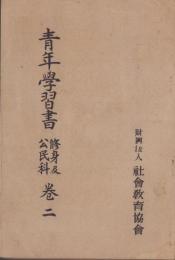 青年學習書
修身及
公民科
卷二
財團法人 社會教育協會